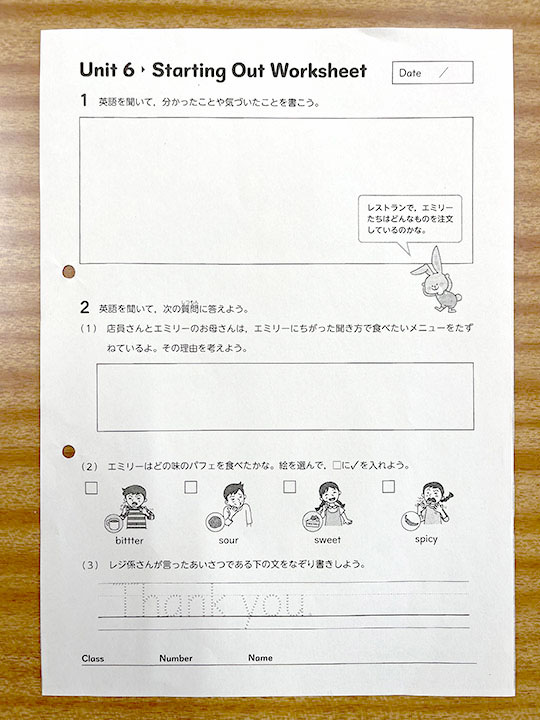 Unit 6 ▸ Starting Out Worksheet
Date /
1 英語を聞いて，分かったことや気づいたことを書こう。
レストランで，エミリー
たちはどんなものを注文
しているのかな。
2 英語を聞いて，次の質問に答えよう。
(1) 店員さんとエミリーのお母さんは，エミリーにちがった聞き方で食べたいメニューをたず
ねているよ。その理由を考えよう。
(2) エミリーはどの味のパフェを食べたかな。絵を選んで，□に✓を入れよう。
bittter sour sweet spicy
(3) レジ係さんが言ったあいさつである下の文をなぞり書きしよう。
Thank you.
Class Number Name